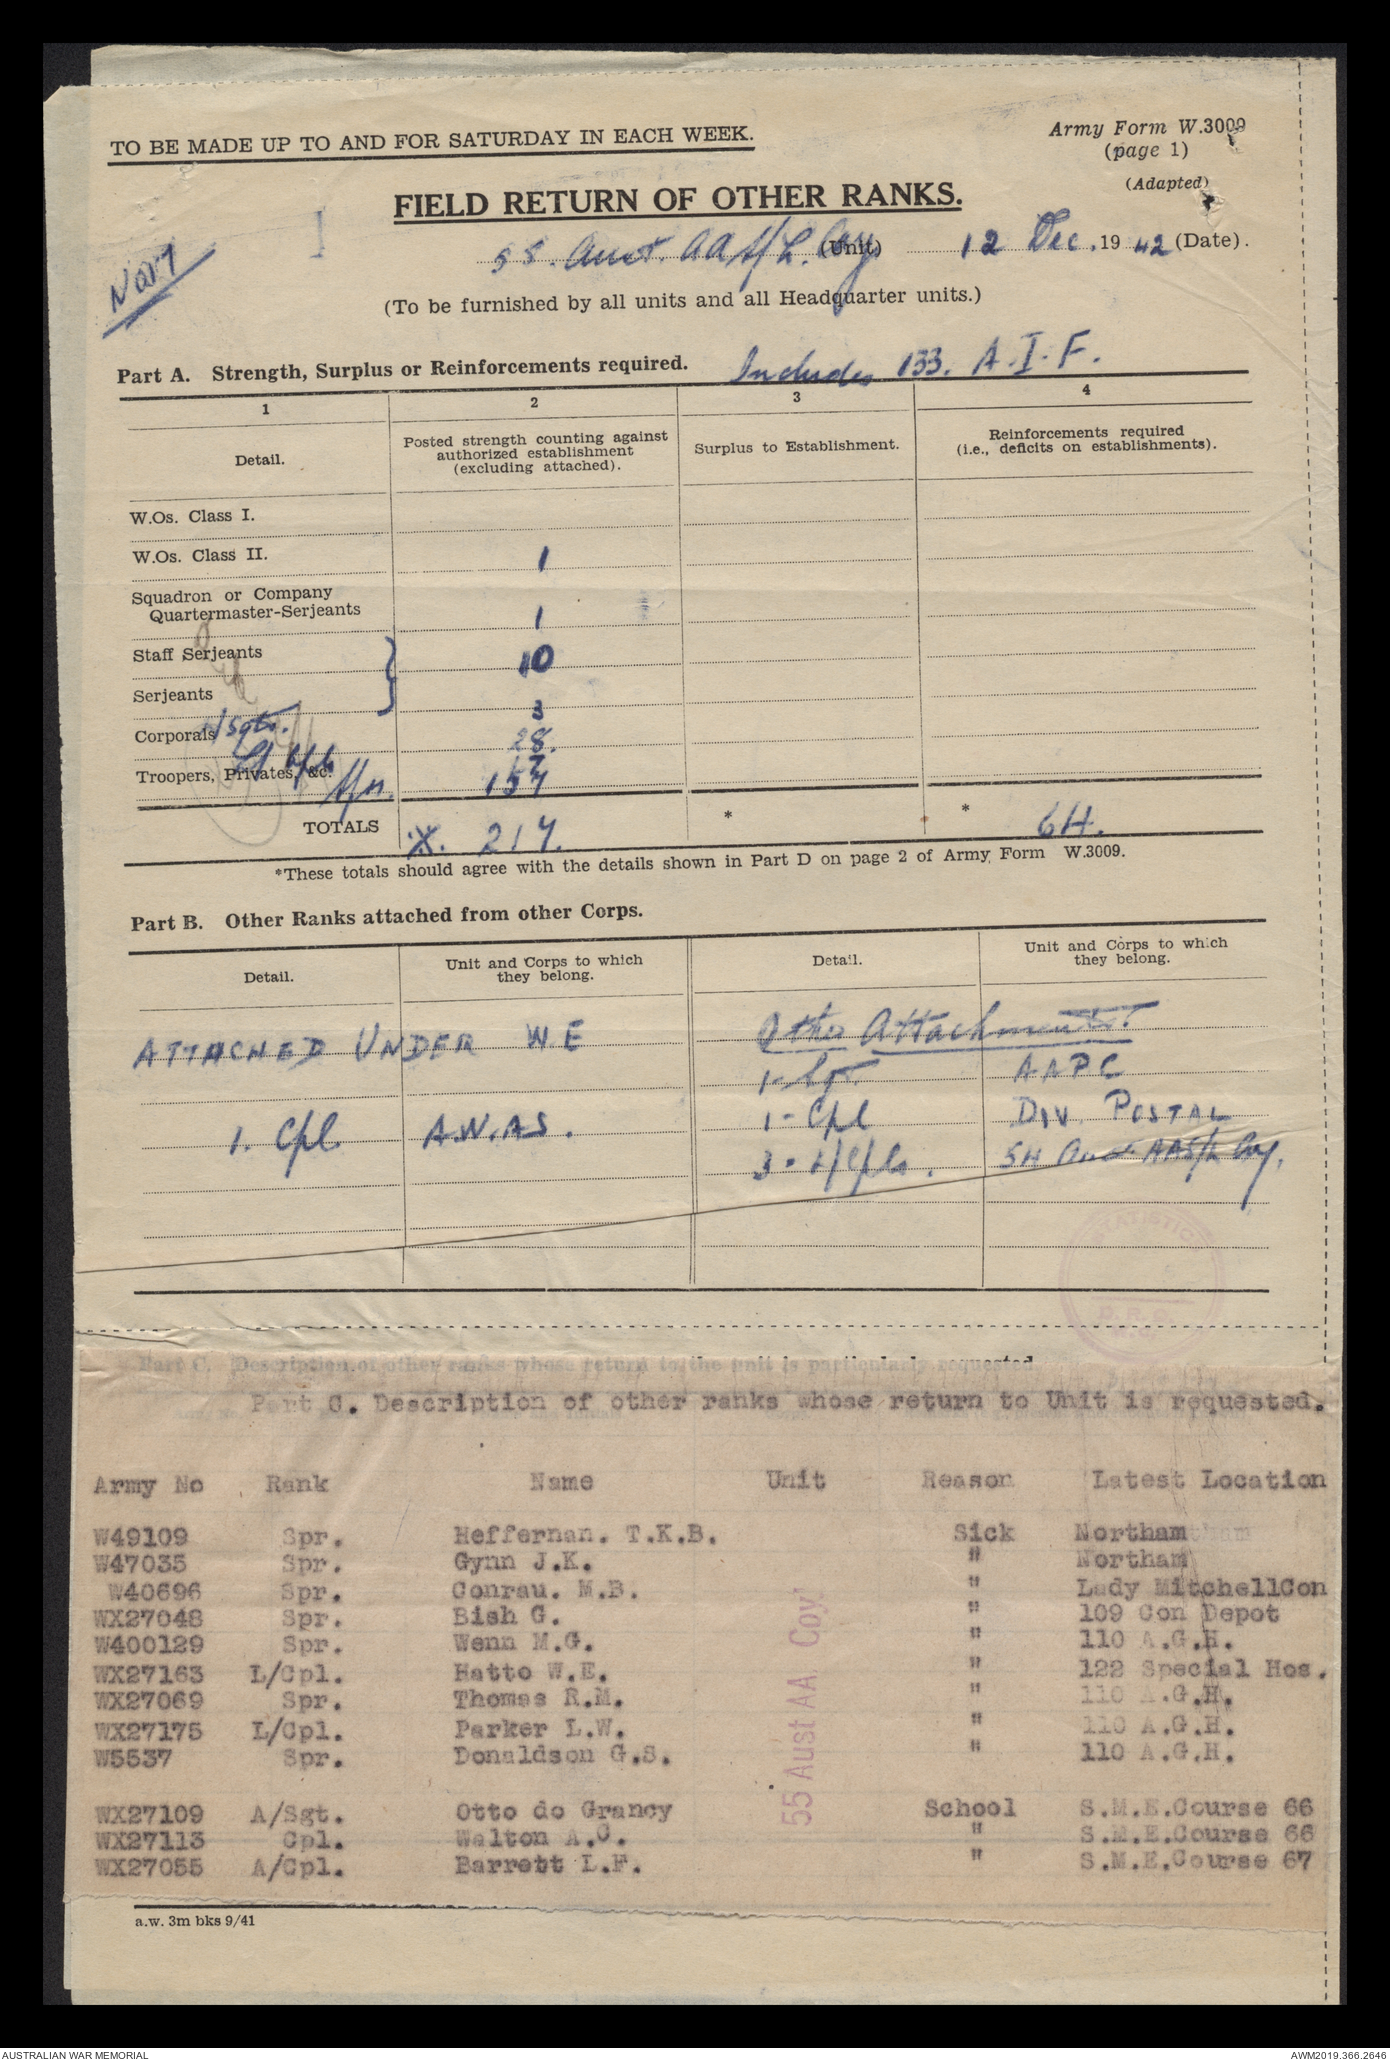 TO BE MADE UP TO AND FOR SATURDAY IN EACH WEEK.
Army Form W.3009
(page 1)
(Adapted)
FIELD RETURN OF OTHER RANKS.
55. Aust. AA S/L. Coy (Unit) 12 Dec. 1942 (Date).
(To be furnished by all units and all Headquarter units.)
Part A. Strength, Surplus or Reinforcements required. Includes 133. A.I.F.
1 2 3 4
Detail. Posted strength counting against authorized establishment (excluding attached). Surplus to Establishment. Reinforcements required (i.e., deficits on establishments).
W.Os. Class I.
W.Os. Class II. 1
Squadron or Company
Quartermaster-Serjeants 1
Staff Serjeants } 10
Serjeants
L/Sgts. 3
Corporals 28.
Troopers, Privates, &c. 157
TOTALS X. 217. * * 64.
*These totals should agree with the details shown in Part D on page 2 of Army Form W.3009.
Part B. Other Ranks attached from other Corps.
Detail. Unit and Corps to which they belong. Detail. Unit and Corps to which they belong.
ATTACHED UNDER W E Other Attachments.
1 - Sgt AAPC
1. Cpl. A.W.A.S. 1 - Cpl DIV. POSTAL
3 - L/Cpls. 54 Aust AA S/L Coy.
Part C. Description of other ranks whose return to the unit is particularly requested
Part C. Description of other ranks whose return to Unit is requested.
Army No Rank Name Unit Reason Latest Location
W49109 Spr. Heffernan. T.K.B. Sick Northam
W47035 Spr. Gynn J.K. " Northam
W40696 Spr. Conrau. M.B. " Lady MitchellCon
WX27048 Spr. Bish G. " 109 Con Depot
W400129 Spr. Wenn M.G. " 110 A.G.H.
WX27163 L/Cpl. Hatto W.E. " 122 Special Hos.
WX27069 Spr. Thomas R.M. " 110 A.G.H.
WX27175 L/Cpl. Parker L.W. " 110 A.G.H.
W5537 Spr. Donaldson G.S. " 110 A.G.H.
55 Aust AA Coy
WX27109 A/Sgt. Otto do Grancy School S.M.E.Course 66
WX27113 Cpl. Walton A.C. " S.M.E.Course 66
WX27055 A/Cpl. Barrett L.F. " S.M.E.Course 67
a.w. 3m bks 9/41
AUSTRALIAN WAR MEMORIAL AWM2019.366.2646